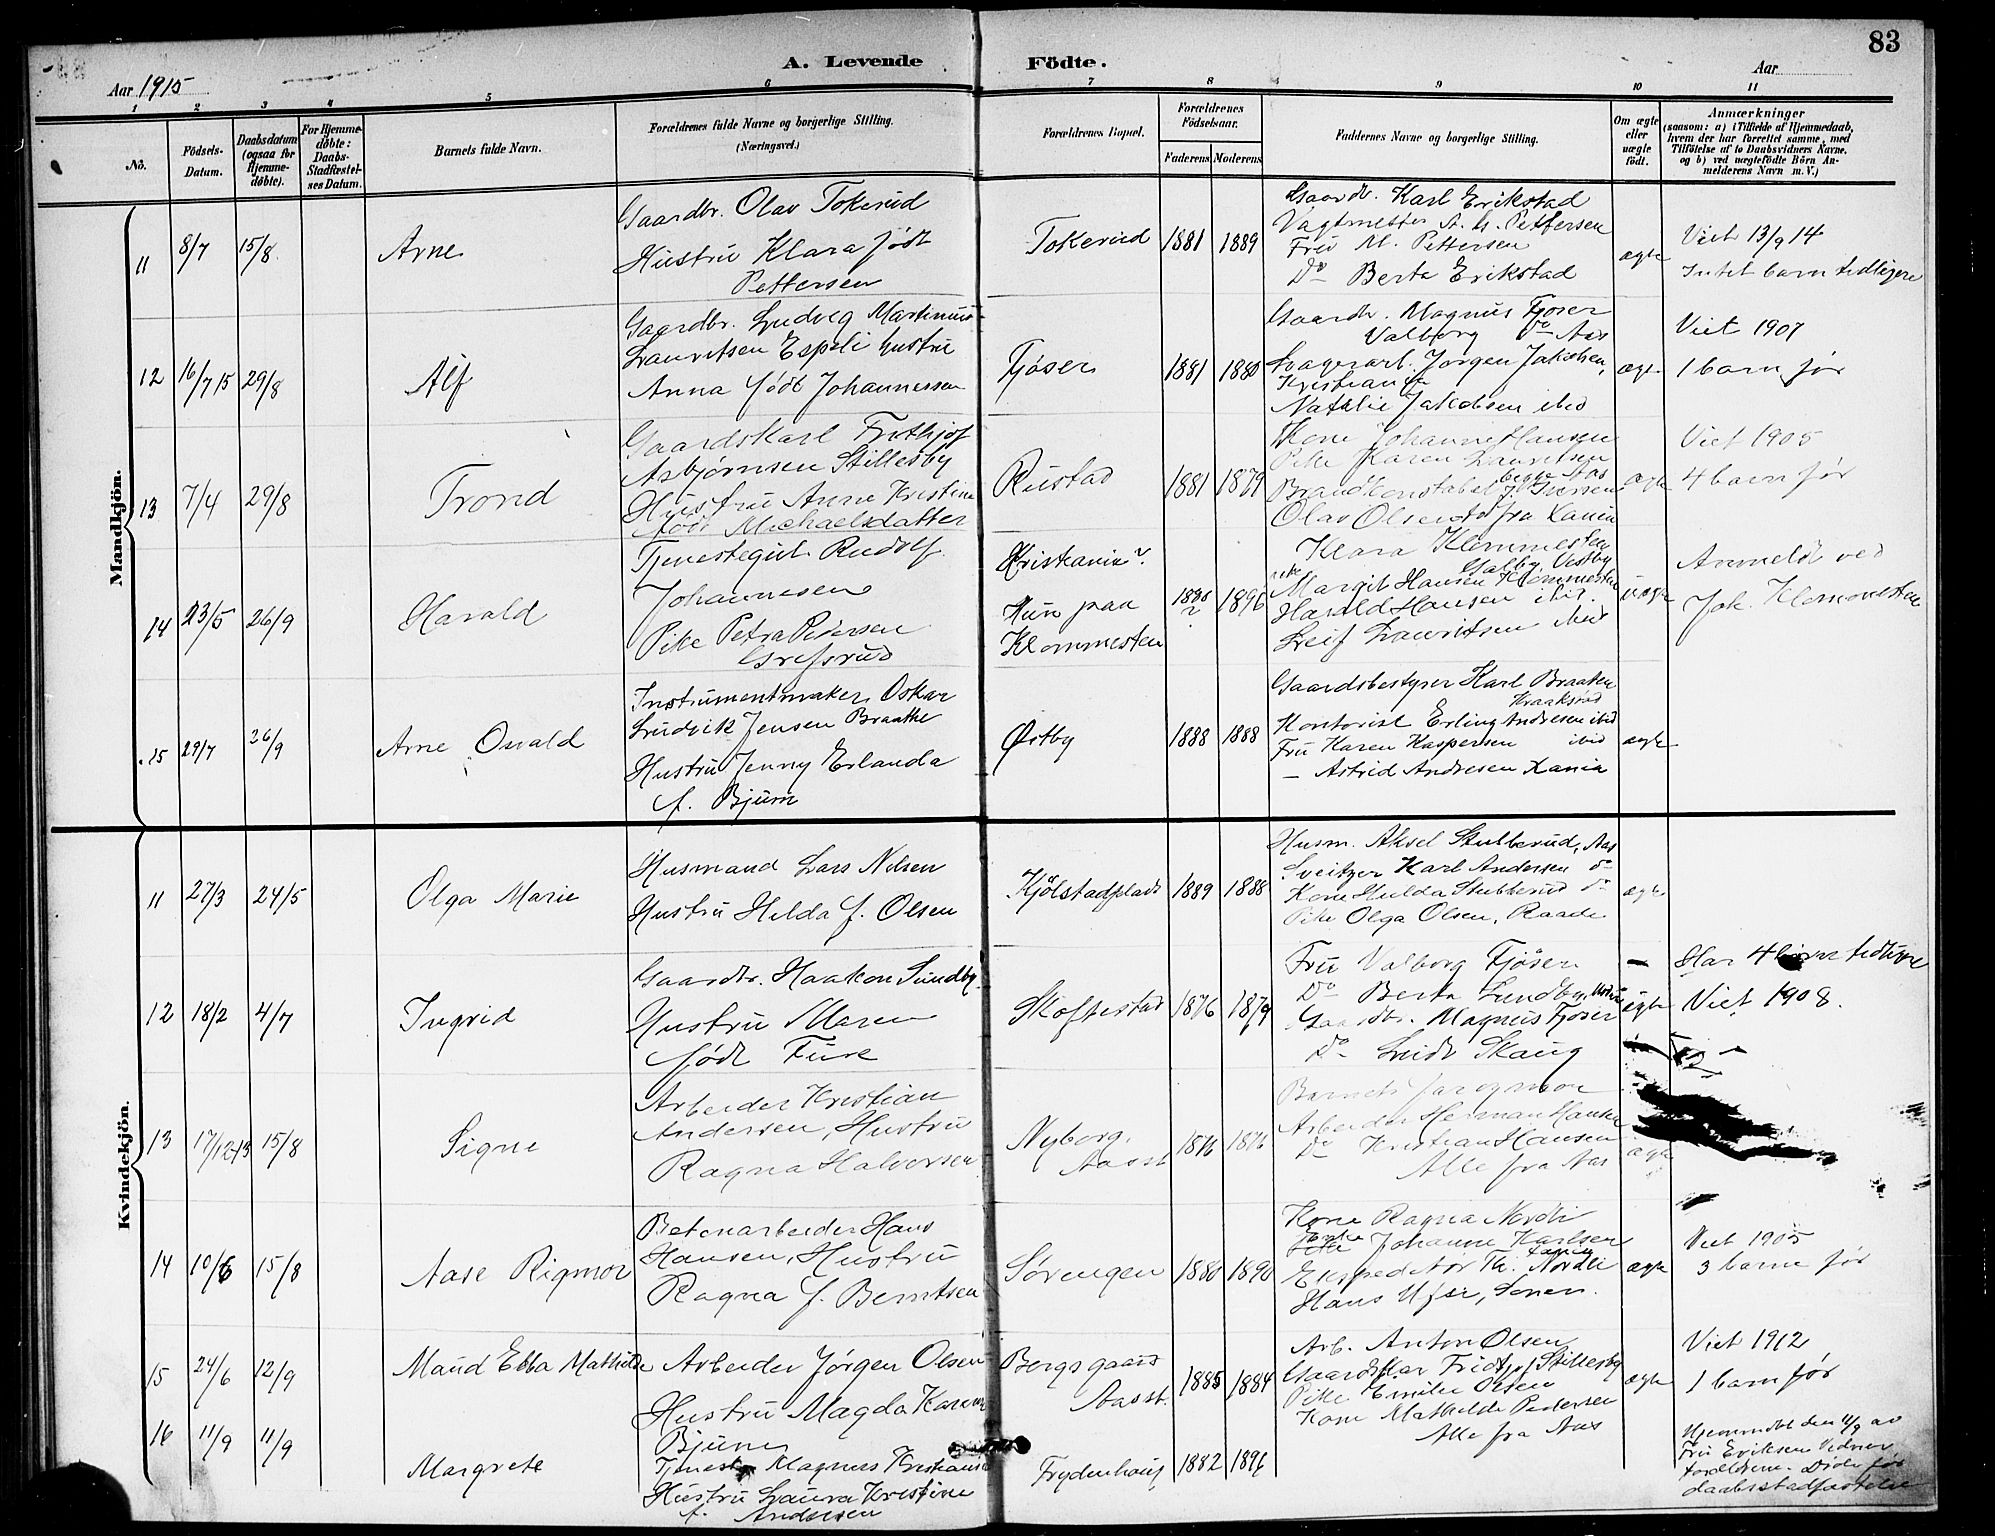 83
A. Levende Födte.
Aar 1915
Aar
1 2 3 4 5 6 7 8 9 10 11
Nô.
Födsels-Datum.
Daabsdatum (ogsaa for Hjemme-döbte).
For Hjemme-döbte: Daabs-Stadfæstel-ses Datum.
Barnets fulde Navn.
Forældrenes fulde Navne og borgerlige Stilling. (Næringsvei.)
Forældrenes Bopæl.
Forældrenes Födselsaar.
Faderens Moderens
Faddernes Navne og borgerlige Stilling.
Om ægte eller uægte födt.
Anmærkninger
(saasom: a) i Tilfælde af Hjemmedaab,
hvem der har forrettet samme, med
Tilföielse af to Daabsvidners Navne.
og b) ved uægtefödte Börn An-
melderens Navn m. V.)
Mandkjön.
11 8/7 15/8 Arne
Gaardbr. Olav Tokerud
Hustru Klara født
Pettersen
Tokerud 1881 1889
Gaardb. Karl Erikstad
Vagtmester A. G. Pettersen
Fru M. Pettersen
Do Berta Erikstad
ægte
Viet 13/9 14
Intet barn tidligere
12 16/7 15 29/8 Alf
Gaardbr. Ludvig Martinius
Lauritsen Espeli Hustru
Anna født Johannessen
Fjøser 1881 1880
Gaardb. Magnus Fjøser
Valborg Do Aas
Lagerarb. Jørgen Jakobsen,
Kristiania
Natalie Jakobsen ibid
ægte
Viet 1907
1 barn før
13 7/4 29/8 Trond
Gaardskarl Frithjof
Asbjørnsen Stillesby
Hustru Anne Kristine
født Michaelsdatter
Rustad 1881 1879
Kone Johanne Hansen
Pike Karen Lauritsen
begge Aas
Brandkonstabel J. Iversen
Olav Olsen fra Kania
ægte
Viet 1905
4 barn før
14 23/5 26/9 Harald
Tjenestegut Rudolf
Johannesen
Pike Petra Pedersen
Grefsrud
Kristiania?
Hun paa
Klommesten
1896
Klara Klemmesten
Galby, Vestby
Margit Hansen Klommesten
Harald Hansen ibid.
Leif Lauritsen ibid
uægte
Anmeldt ved
Joh. Klommesten
15 29/7 26/9 Arne Osvald
Instrumentmaker Oskar
Ludvik Jensen Braathe
Hustru Jenny Erlanda
f. Bjum
Østby 1888 1888
Gaardsbestyrer Karl Braaten
Kraaksrød
Kontorist Erling Andresen ibid
Fru Karen Kaspersen ibid
— Astrid Andresen Kania
ægte
Kvindekjön.
11 27/3 24/5 Olga Marie
Husmand Lars Nilsen
Hustru Hilda f. Olsen
Kjølstadplads 1889 1888
Husm. Aksel Stubberud, Aas
Sveitzer Karl Andersen do
Kone Hulda Stubberud do
Pike Olga Olsen, Raade
ægte
12 18/2 4/7 Ingrid
Gaardbr. Haakon Sundby
Hustru Maren
født Fure
Skoftestad 1876 1879
Fru Valborg Fjøser
Do Berta Sundby
Gaardbr. Magnus Fjøser
Do Skaug
ægte
Har 4 børn tidligere
Viet 1908.
13 17/12 13 15/8 Signe
Arbeider Kristian
Andersen, Hustru
Ragna Halvorsen
Nyborg,
Aasst
1876 1876
Barnets far og mor
Arbeider Herman Hansen
Do Kristian Hansen
Alle fra Aas
ægte
14 10/6 15/8 Aase Rigmor
Betonarbeider Hans
Hansen, Hustru
Ragna f. Berntsen
Sørengen 1880 1890
Kone Ragna Nordli
Johanne Karlsen
Ekspeditør Th. Nordli
Hans
ægte
Viet 1905
3 barne før
15 24/6 12/9 Maud Ebba Mathilde
Arbeider Jørgen Olsen
Hustru Magda Karen
Bjune
Bergsgaard
Aasst.
1885 1884
Arb. Anton Olsen
Gaardskar Fridtjof Stillesby
Pike Emilie Olsen
Kone Mathilde Pedersen
Alle fra Aas
ægte
Viet 1912
1 barn før
16 11/9 11/9 Margrete
Tjenest. Magnus Kristiansen
Hustru Laura Kristine
f. Andersen
Frydenhaug 1882 1896
Hjemmedøbt den 11/9 av
Fru Eriksen Vidner
forældrene. Døde før
daabsstadfæstelse